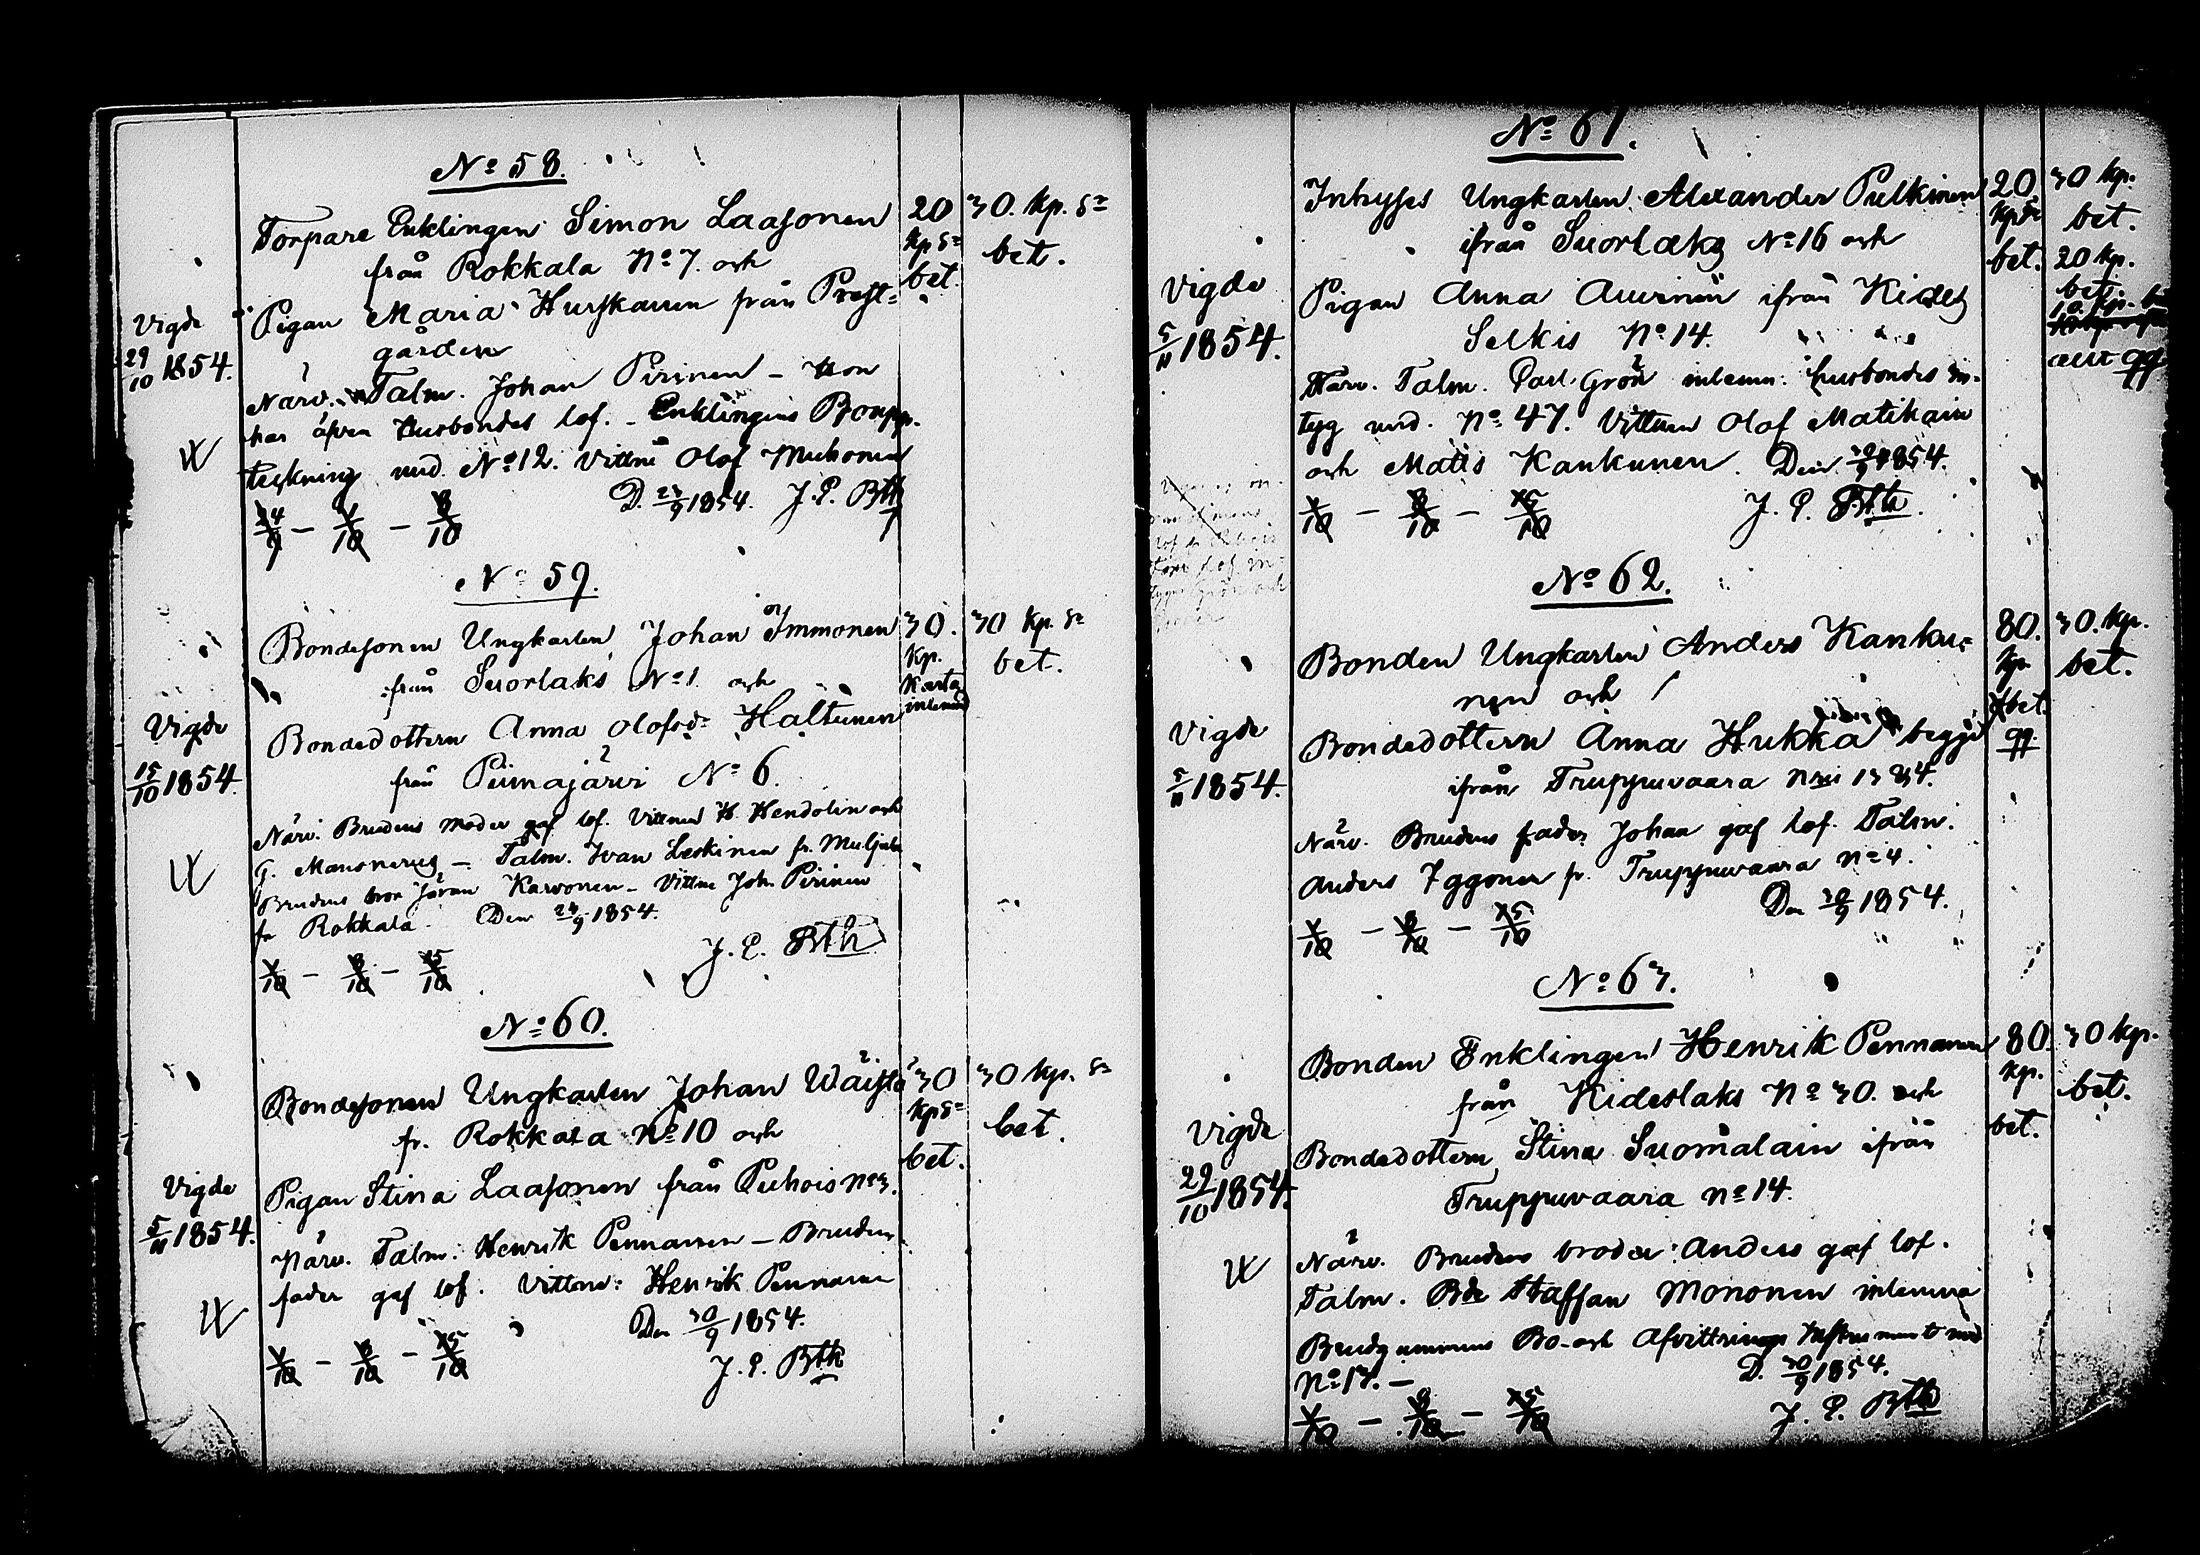 No 58.
Torpare Enklingen Simon Laasonen
från Rokkala No 7. och
Pigan Maria Hurskainen från Prest-
gården
Närv. Talm. Johan Pirinen – Hon
har äfven Husbondes lof. – Enklingens Boupp-
teckning med No 12. Vittne Olof Muhonen
D. 23/9 1854. J. E. Bth
24/9 – 1/10 – 8/10
Vigde
29/10 1854.
20
kp Sr
bet.
30. kp. Sr
bet.
No 59.
Bondesonen Ungkarlen Johan Immonen
från Suorlaks No 1. och
Bondedottern Anna Olofsdr Haltunen
från Piimajärvi No 6.
Närv. Brudens moder gaf lof. Vittnen H. Hendolin och
G. – Talm. Ivan Leskinen fr. Muljula
Brudens bror Karvonen – Vittne Joh. Pirinen
fr Rokkala. Den 1854.
J. E. Bth
1/10 – 8/10 – 15/10
Vigde
15/10 1854.
30.
kp.
Karta
inlemnd
30 kp. Sr
bet.
No 60.
Bondesonen Ungkarlen Johan Wäistö
fr. Rokkala No 10 och
Pigan Stina Laasonen från Puhois No 3.
Närv. Talm. Henrik Pennanen – Brudens
fader gaf lof. Vittne: Henrik Pennanen
Den 30/9 1854.
1/10 – 8/10 – 15/10
J. E. Bth
Vigde
5/11 1854.
30
kp Sr
bet.
30 kp. Sr
bet.
No 61.
Inhyses Ungkarlen Alexander Pulkinen
ifrån Suorlaks No 16 och
Pigan Anna Auvinen ifrån Kides
Selkis No 14.
Närv. Talm. Carl Grön inlemn. husbondes in-
tyg med. No 47. Vittnen Olof Matikain
och Matts Kankunen. Den 30/9 1854.
1/10 – 8/10 – 15/10
J. E. Bth.
Vigde
5/11 1854.
20.
kp Sr
bet.
30 kp.
bet.
20 kp.
bet.
10. kp.
No 62.
Bonden Ungkarlen Anders Kanku-
nen och
Bondedottern Anna Hukka begge
ifrån Truppuvaara Nris 13 & 4.
Närv. Brudens fader Johan gaf lof. Talm.
Anders Iggonen fr. Truppuvaara No 4.
Den 30/9 1854.
1/10 – 8/10 – 15/10
Vigde
5/11 1854.
80.
kp
bet.
30. kp.
bet.
No 63.
Bonden Enklingen Henrik Pennanen
från Kideslaks No 30. och
Bondedottern Stina Suomalain ifrån
Truppuvaara No 14.
Närv. Brudens broder Anders gaf lof.
Talm. Bde Staffan Mononen inlemna
Brudgummens Bo- och Afvittrings Instrument med
No 17. –
D. 30/9 1854.
1/10 – 8/10 – 15/10
J. E. Bth
Vigde
29/10 1854.
80.
kp.
bet.
30 kp.
bet.